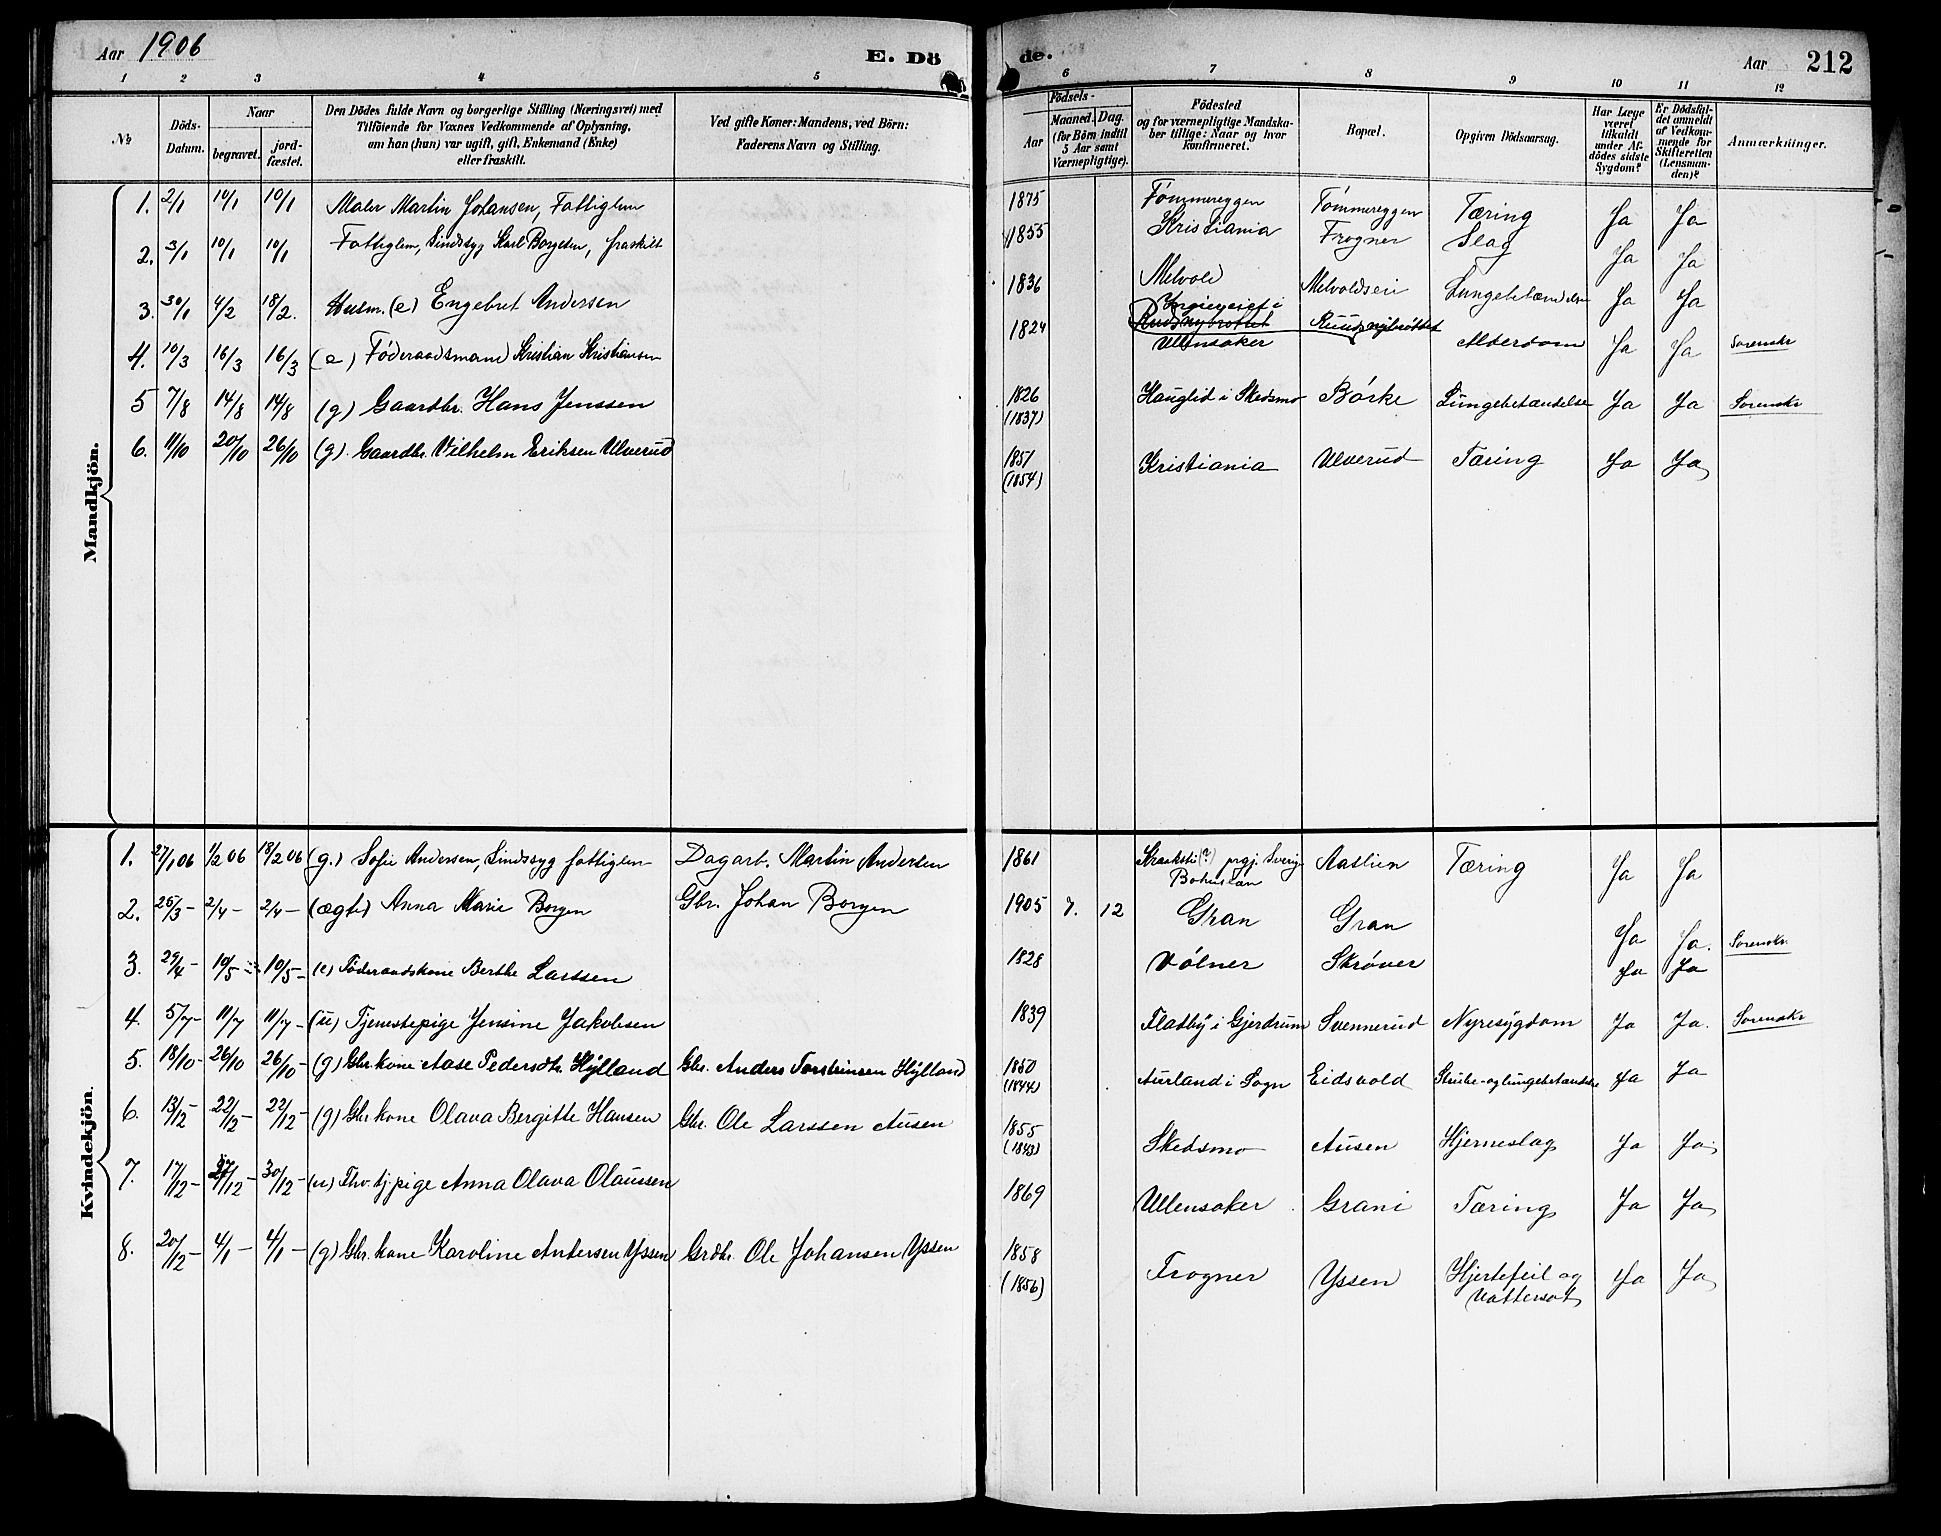 Aar 1906
E. Dö
de.
Aar
212
1 2 3 4 5
6 7 8 9 10 11 12
№
Döds-Datum.
Naar
begravet.
jord-fæstet.
Den Dödes fulde Navn og borgerlige Stilling (Næringsvei) med
Tilföiende for Voxnes Vedkommende af Oplysning,
om han (hun) var ugift, gift, Enkemand (Enke)
eller fraskilt.
Ved gifte Koner: Mandens, ved Börn:
Faderens Navn og Stilling.
Födsels-
Aar
Maaned. Dag.
(for Börn indtil
5 Aar samt
Værnepligtige).
Födested
og for værnepligtige Mandska-
ber tillige: Naar og hvor
konfirmeret.
Bopæl.
Opgiven Dödsaarsag.
Har Læge
været
tilkaldt
under Af-
dödes sidste
Sygdom?
Er Dödsfal-
det anmeldt
af Vedkom-
mende for
Skifteretten
(Lensman-
den)?
Anmærkninger.
Mandkjön.
1. 2/1 10/1 10/1 Maler Martin Johansen, Fattiglem 1875 Tømmereggen Tømmereggen Tæring Ja Ja
2. 3/1 10/1 10/1 Fattiglem, Sindssyg Karl Borgesen, fraskilt 1855 Kristiania Frogner Slag Ja Ja
3. 30/1 4/2 18/2. Husm. (e) Engebret Andersen 1836 Melvold Melvoldseie Lungebetændelse Ja Ja
4. 10/3 16/3 16/3 (e) Føderaadsmand Kristian Kristiansen 1824 Rudsnybrottet Ullensaker Ruudsnybrøttet Alderdom Ja Ja Sorenskr
5 7/8 14/8 14/8 (g) Gaardbr. Hans Jenssen 1826 (1837) Hauglid i Skedsmo Børke Lungebetændelse Ja Ja Sorenskr
6. 11/10 20/10 26/10 (g). Gaardbr. Vilhelm Eriksen Ulverud 1851 (1854) Kristiania Ulverud Tæring Ja Ja
Kvindekjön.
1. 27/1 06 1/2 06 18/2 06 (g.) Sofie Andersen, Sindssyg fattiglem Dagarb. Martin Andersen 1861 (?) prgj. Sverig Bohuslän Aaslien Tæring Ja Ja
2. 25/3 - 2/4 - 2/4 - (ægte) Anna Marie Borgen Gbr. Johan Borgen 1905 7. 12 Gran Gran Ja Ja. Sorenskr.
3. 29/4 - 10/5 - 10/5 - (e) Føderaadskone Berthe Larssen 1828 Vølner Skrøver Ja Ja
4. 5/7 - 11/7 11/7 - (u) Tjenestepige Jensine Jakobsen 1839 Fladby i Gjerdrum Svennerud Nyresygdom Ja Ja. Sorenskr
5. 18/10 - 26/10 26/10 - (g) Gbr. kone Aase Pedersdtr. Hylland Gbr. Anders Torsteinsen Hylland 1850 (1844) Aurland i Sogn Eidsvold Strube- og lungebetændelse Ja Ja
6. 13/12 22/12 - 22/12 - (g) Gbr kone Olava Bergitte Hansen Gbr. Ole Larssen Ausen 1855 (1843) Skedsmo Ausen Hjerneslag Ja Ja
7. 17/12 - 27/12 - 30/12 - (u) Fhv. tj. pige Anna Olava Olaussen 1869 Ullensaker Grani Tæring Ja Ja
8. 20/12 - 4/1 - 4/1 - (g) Gbr. kone Karoline Andersen Yssen Grdbr. Ole Johansen Yssen 1858 (1856) Frogner Yssen Hjertefeil og Vattersot Ja Ja